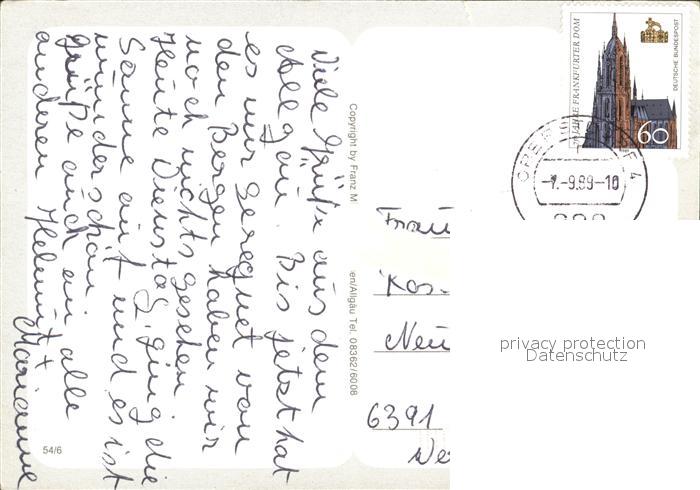 Viele Grüße aus dem
Allgäu. Bis jetzt hat
es nur geregnet von
den Bergen haben wir
noch nichts gesehen
Heute Dienstag ging die
Sonne auf und es ist
wunderschön
Grüße auch an alle
anderen Helmut +
Marianne
54/6
Copyright by Franz Mi
en/Allgäu Tel. 08362/6008
JAHRE FRANKFURTER DOM
DEUTSCHE BUNDESPOST
60
-9.89-10
Frau
Kos
Neu
6391
We
privacy protection
Datenschutz